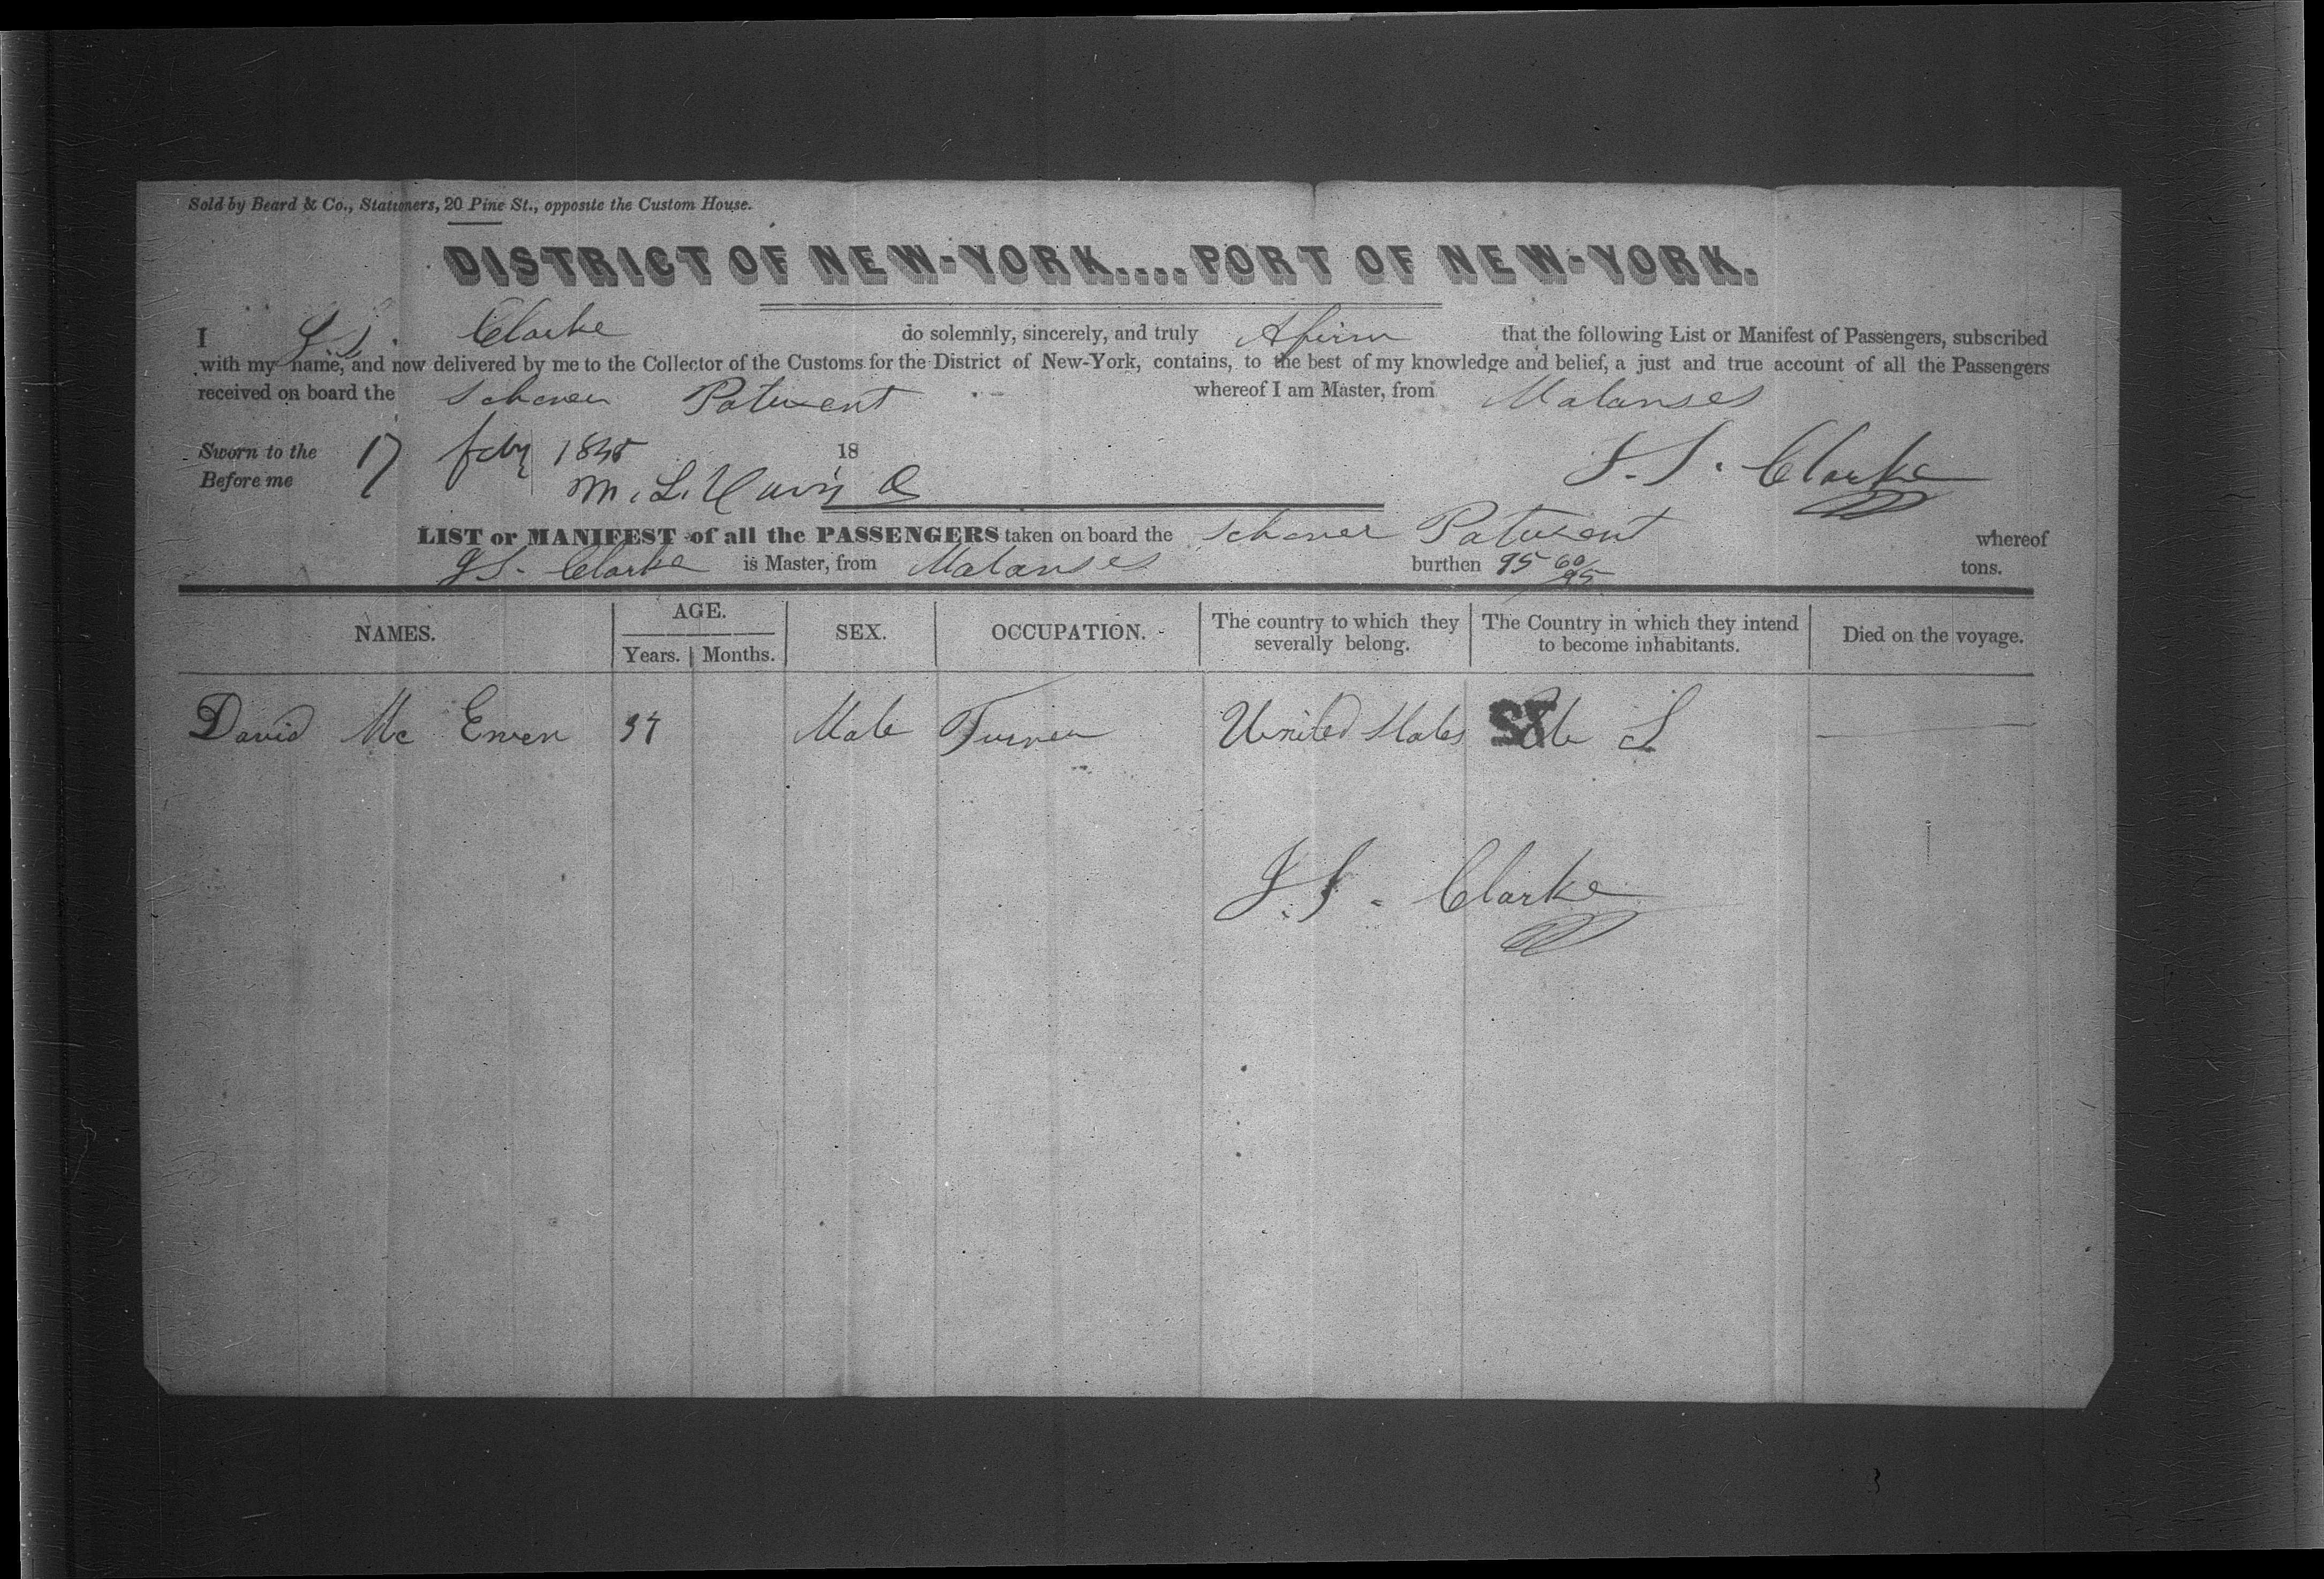 Sold by Beard & Co., Stationers, 20 Pine St., opposite the Custom House.
DISTRICT OF NEW-YORK....PORT OF NEW-YORK.
I J.S. Clarke do solemnly, sincerely, and truly Afirm that the following List or Manifest of Passengers, subscribed
with my name, and now delivered by me to the Collector of the Customs for the District of New-York, contains, to the best of my knowledge and belief, a just and true account of all the Passengers
received on board the Schoner Patuxent whereof I am Master, from Matanses
Sworn to the 17 feby 1845 18 J.S. Clarke
Before me M. L. Davis
LIST or MANIFEST of all the PASSENGERS taken on board the Schoner Patuxent whereof
J S. Clarke is Master, from Matanses burthen 95 60/95 tons.
NAMES. AGE. Years. Months. SEX. OCCUPATION. The country to which they severally belong. The Country in which they intend to become inhabitants. Died on the voyage.
David Mc Ewen 37 Male Turner United States
J.S. Clarke